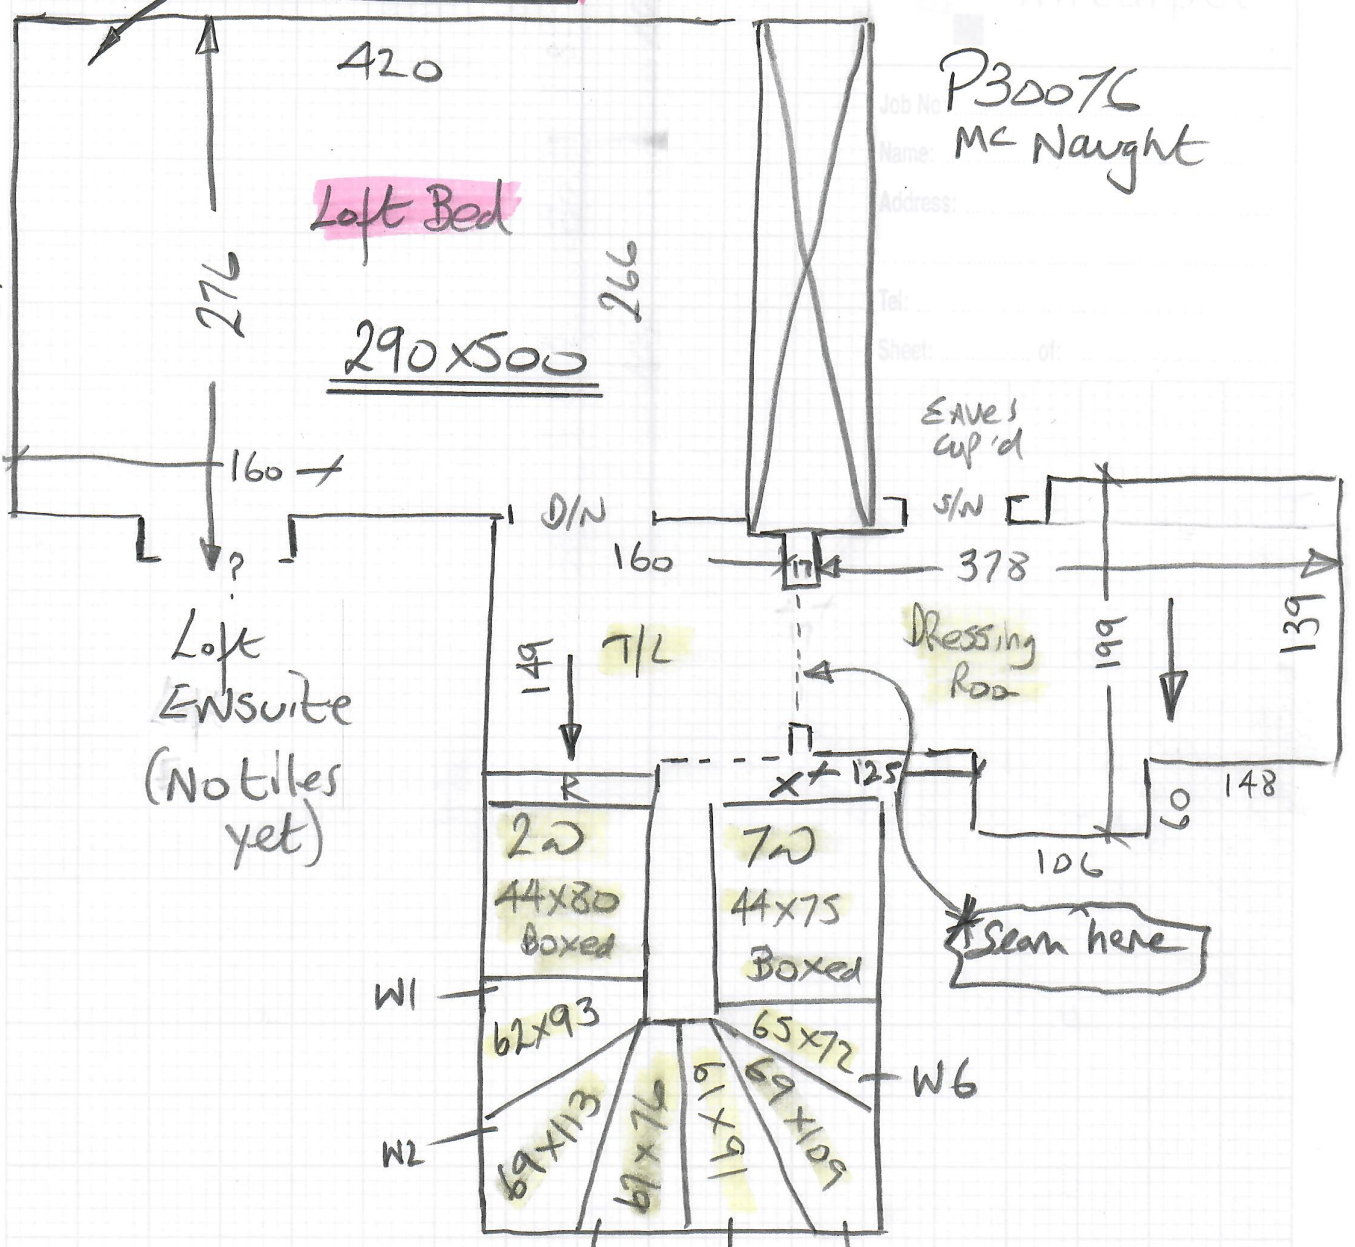 420
P30076
Mc Naught
Job No
Name:
Address:
Tel:
Sheet: of:
Loft Bed
276
266
290x500
160
Eaves
Cup'd
D/N
S/N
160
17
378
?
Loft
ENsuite
(No tiles
yet)
149
T/L
Dressing
199
139
R
X
125
60
148
106
2W
44x80
Boxed
7W
44x75
Boxed
Seam here
W1
62x93
65x72
W6
W2
69x113
61x91
69x109